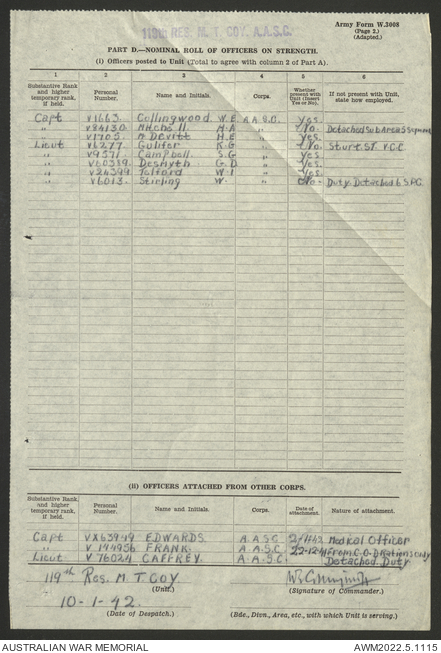 119th RES. M. T. COY. A.A.S.C.
Army Form W.3008
(Page 2.)
(Adapted.)
PART D.—NOMINAL ROLL OF OFFICERS ON STRENGTH.
(1) Officers posted to Unit (Total to agree with column 2 of Part A).
1 2 3 4 5 6
Substantive Rank and higher temporary rank, if held. Personal Number. Name and Initials. Corps. Whether present with Unit (Insert Yes or No). If not present with Unit, state how employed.
Capt V1663. Collingwood. W.E A.A.S.C. Yes.
" V84130. Mitchell H.A " No. Detached Sub area
" V1705. McDevitt H.E " Yes.
Lieut V6277. Gulifer K.G " No. Sturt ST V.C.C
" V9571. Campbell. S.G " Yes.
" V60359. G.D " Yes.
" V24399 Telford W.I " Yes.
" V6013. Stirling W. " No. Duty Detached
(ii) OFFICERS ATTACHED FROM OTHER CORPS.
Substantive Rank and higher temporary rank, if held. Personal Number. Name and Initials. Corps. Date of attachment. Nature of attachment.
Capt VX63949 EDWARDS. A.A.S.C Medical Officer
" V144956 FRANK. A.A.S.C. 22-12-41 Rations only
Lieut V76024 CAFFREY. A.A.S.C. Detached Duty
119th Res. M.T. COY.
(Unit.)
(Signature of Commander.)
10-1-42.
(Date of Despatch.)
(Bde., Divn., Area, etc., with which Unit is serving.)
AUSTRALIAN WAR MEMORIAL
AWM2022.5.1115